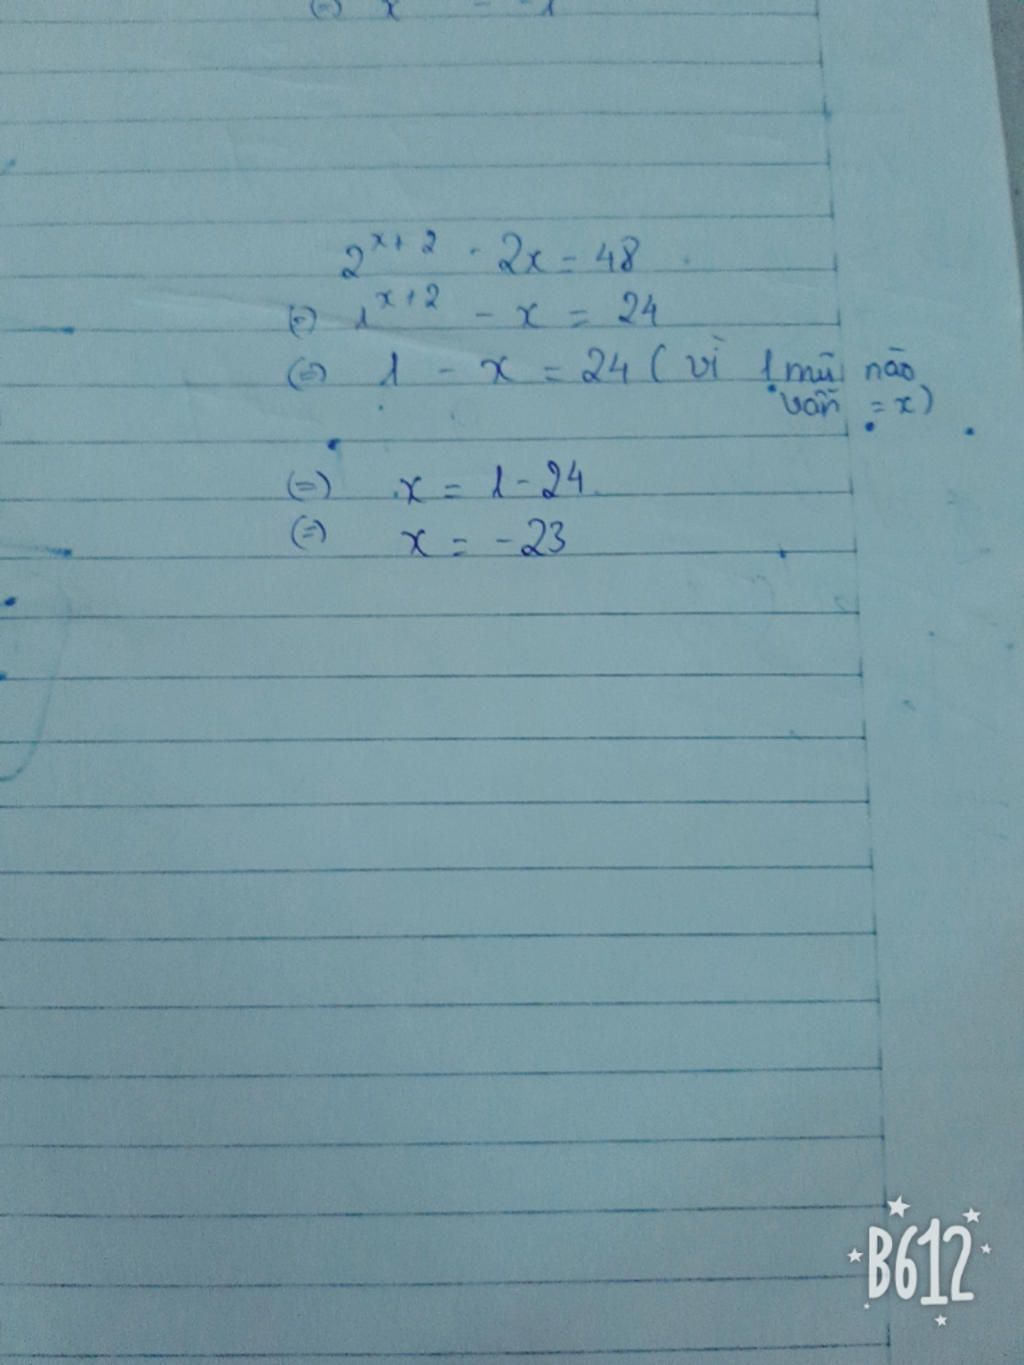 (=) x = -1
2^{x+2} - 2x = 48
(=) 1^{x+2} - x = 24
(=) 1 - x = 24 ( vì 1 mũ nào
vẫn = x)
(=) x = 1 - 24
(=) x = -23
B612